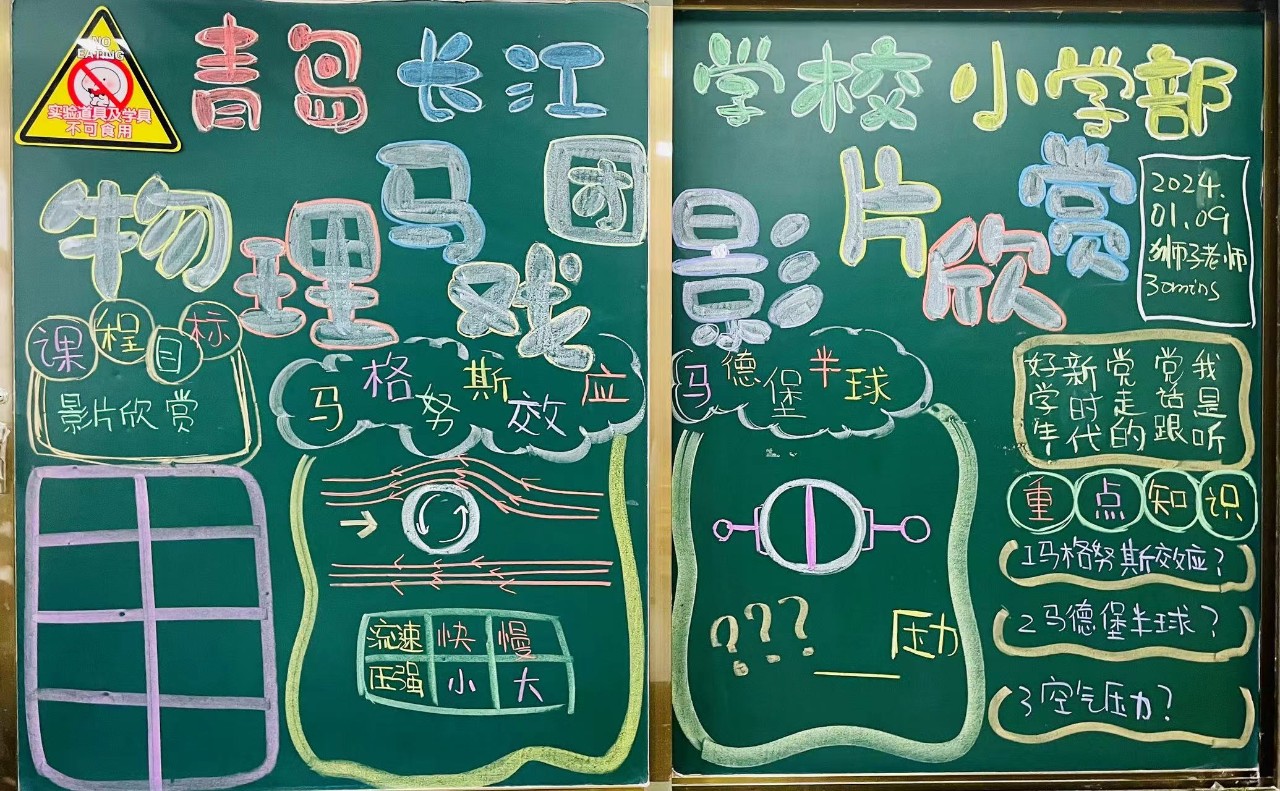 NO
EATING
实验道具及学具
不可食用
青岛长江学校小学部
物理马戏团
影片欣赏
2024.
01.09
狮子老师
30mins
课程目标
影片欣赏
马格努斯效应
流速 快 慢
压强 小 大
马德堡半球
???
压力
我是听
党话跟
党走的
新时代
好学生
重点知识
1马格努斯效应?
2马德堡半球?
3空气压力?